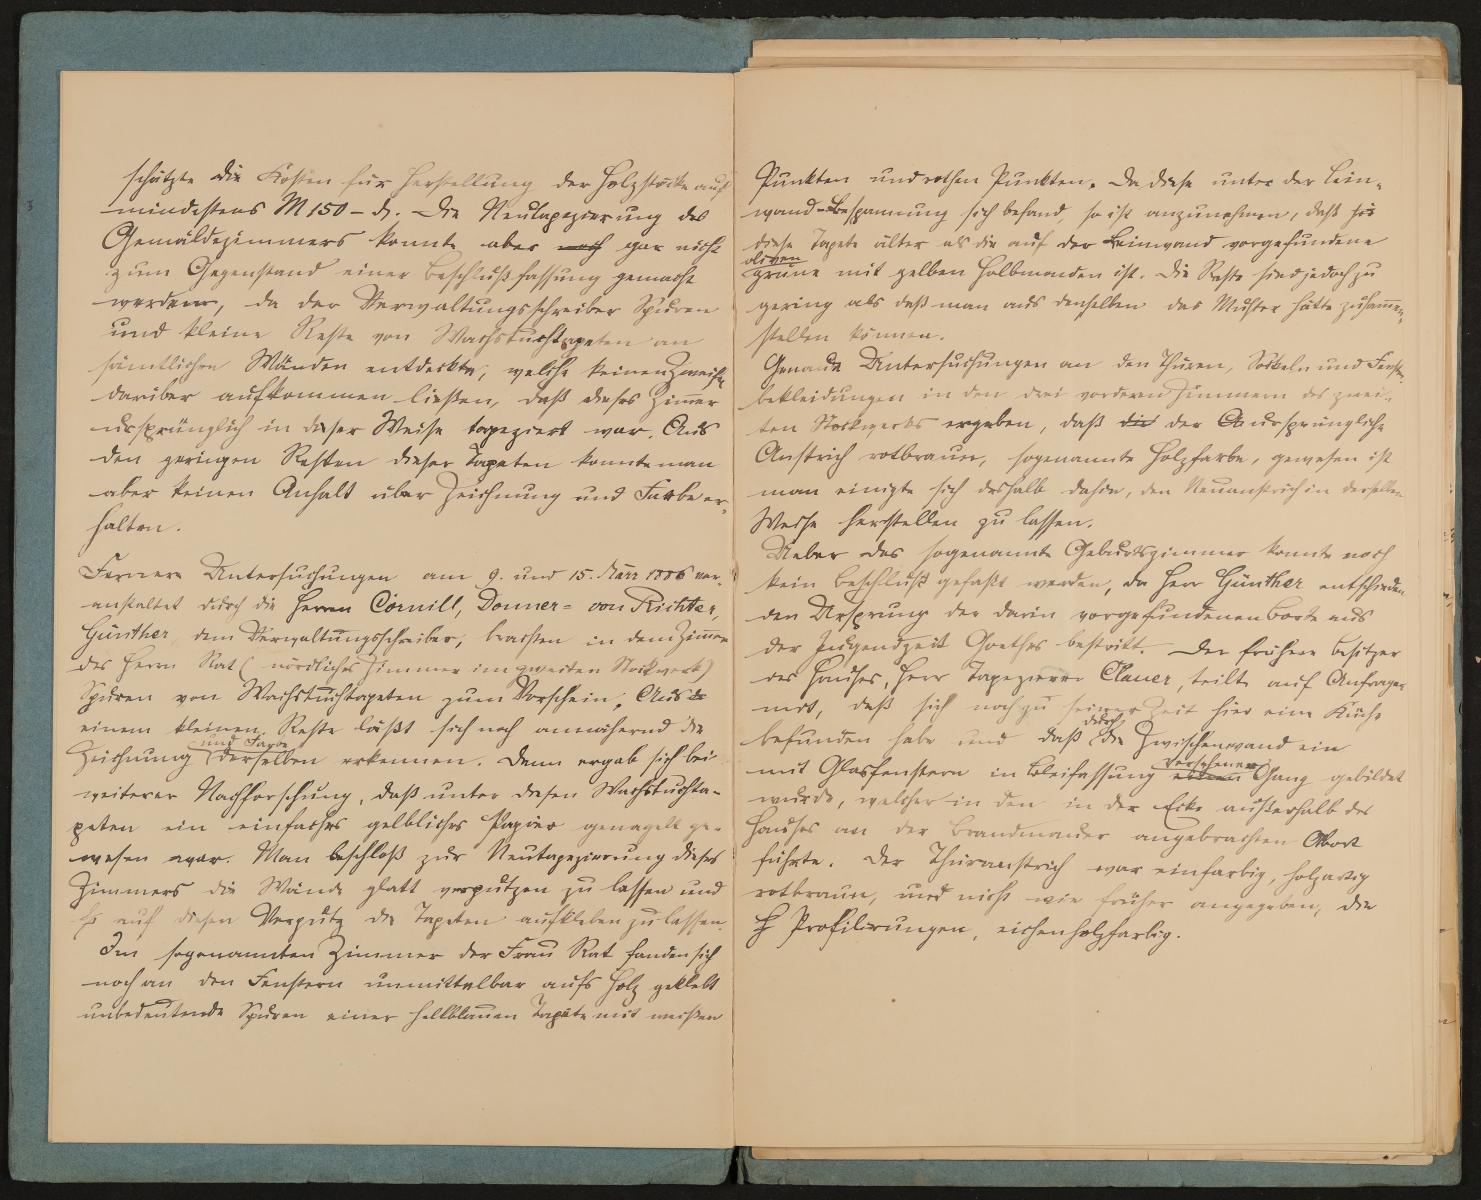 schätzte die Kosten für Herstellung der Holzstücke auf
mindestens M 150 – d. Die Neutapezierung des
Gemäldezimmers konnte aber noch gar nicht
zum Gegenstand einer Beschlußfassung gemacht
werden, da der Verwaltungsschreiber Spuren
und kleine Reste von Wachstuchtapeten an
sämtlichen Wänden entdeckte, welche keinen Zweifel
darüber aufkommen ließen, daß dieses Zimmer
ursprünglich in dieser Weise tapeziert war. Aus
den geringen Resten dieser Tapeten konnte man
aber keinen Anhalt über Zeichnung und Farbe er-
halten.
Fernere Untersuchungen am 9. und 15. März 1886 ver-
anstaltet durch die Herren Cornill, Donner- von Richter,
Günther, dem Verwaltungsschreiber, brachten in dem Zimmer
des Herrn Rat (nördliches Zimmer im zweiten Stockwerk)
Spuren von Wachstuchtapeten zum Vorschein. Aus
einem kleinen Reste läßt sich noch annähernd die
Zeichnung und Farbe derselben erkennen. Dann ergab sich bei
weiterer Nachforschung, daß unter diesen Wachstuchta-
peten ein einfaches gelbliches Papier genagelt ge-
wesen war. Man beschloß zur Neutapezierung dieses
Zimmers die Wände glatt verputzen zu lassen und
auf diesen Verputz die Tapeten aufkleben zu lassen.
Im sogenannten Zimmer der Frau Rat fanden sich
noch an den Fenstern unmittelbar aufs Holz geklebt
unbedeutende Spuren einer hellblauen Tapete mit weißen
Punkten und rothen Punkten. Da diese unter der Lein-
wand-Bespannung sich befand, so ist anzunehmen, daß
diese Tapete älter als die auf der Leinwand vorgefundene
oliven
grüne mit gelben Halbmonden ist. Die Reste sind jedoch zu
gering als daß man aus denselben das Muster hätte zusammen-
stellen können.
Genaue Untersuchungen an den Thüren, Sockeln und Fenster-
bekleidungen in den drei vorderen Zimmern des zwei-
ten Stockwerks ergaben, daß die der ursprüngliche
Anstrich rotbraun, sogenannte Holzfarbe, gewesen ist
man einigte sich deshalb dahin, den Neuanstrich in derselben
Weise herstellen zu lassen.
Ueber das sogenannte Geburtszimmer konnte noch
kein Beschluß gefaßt werden, da Herr Günther entschieden
den Ursprung der darin vorgefundenen Borte aus
der Jugendzeit Goethes bestritt. Der frühere Besitzer
des Hauses, Herr Tapezierer Clauer, teilte auf Anfragen
mit, daß sich noch zu seiner Zeit hier eine Küche
befunden habe und daß durch die Zwischenwand ein
mit Glasfenstern in Bleifassung versehener Gang gebildet
wurde, welcher in den in der Ecke außerhalb des
Hauses an der Brandmauer angebrachten Abort
führte. Der Thüranstrich war einfarbig, holzartig
rotbraun, und nicht wie früher angegeben, die
Profilirungen, eichenholzfarbig.